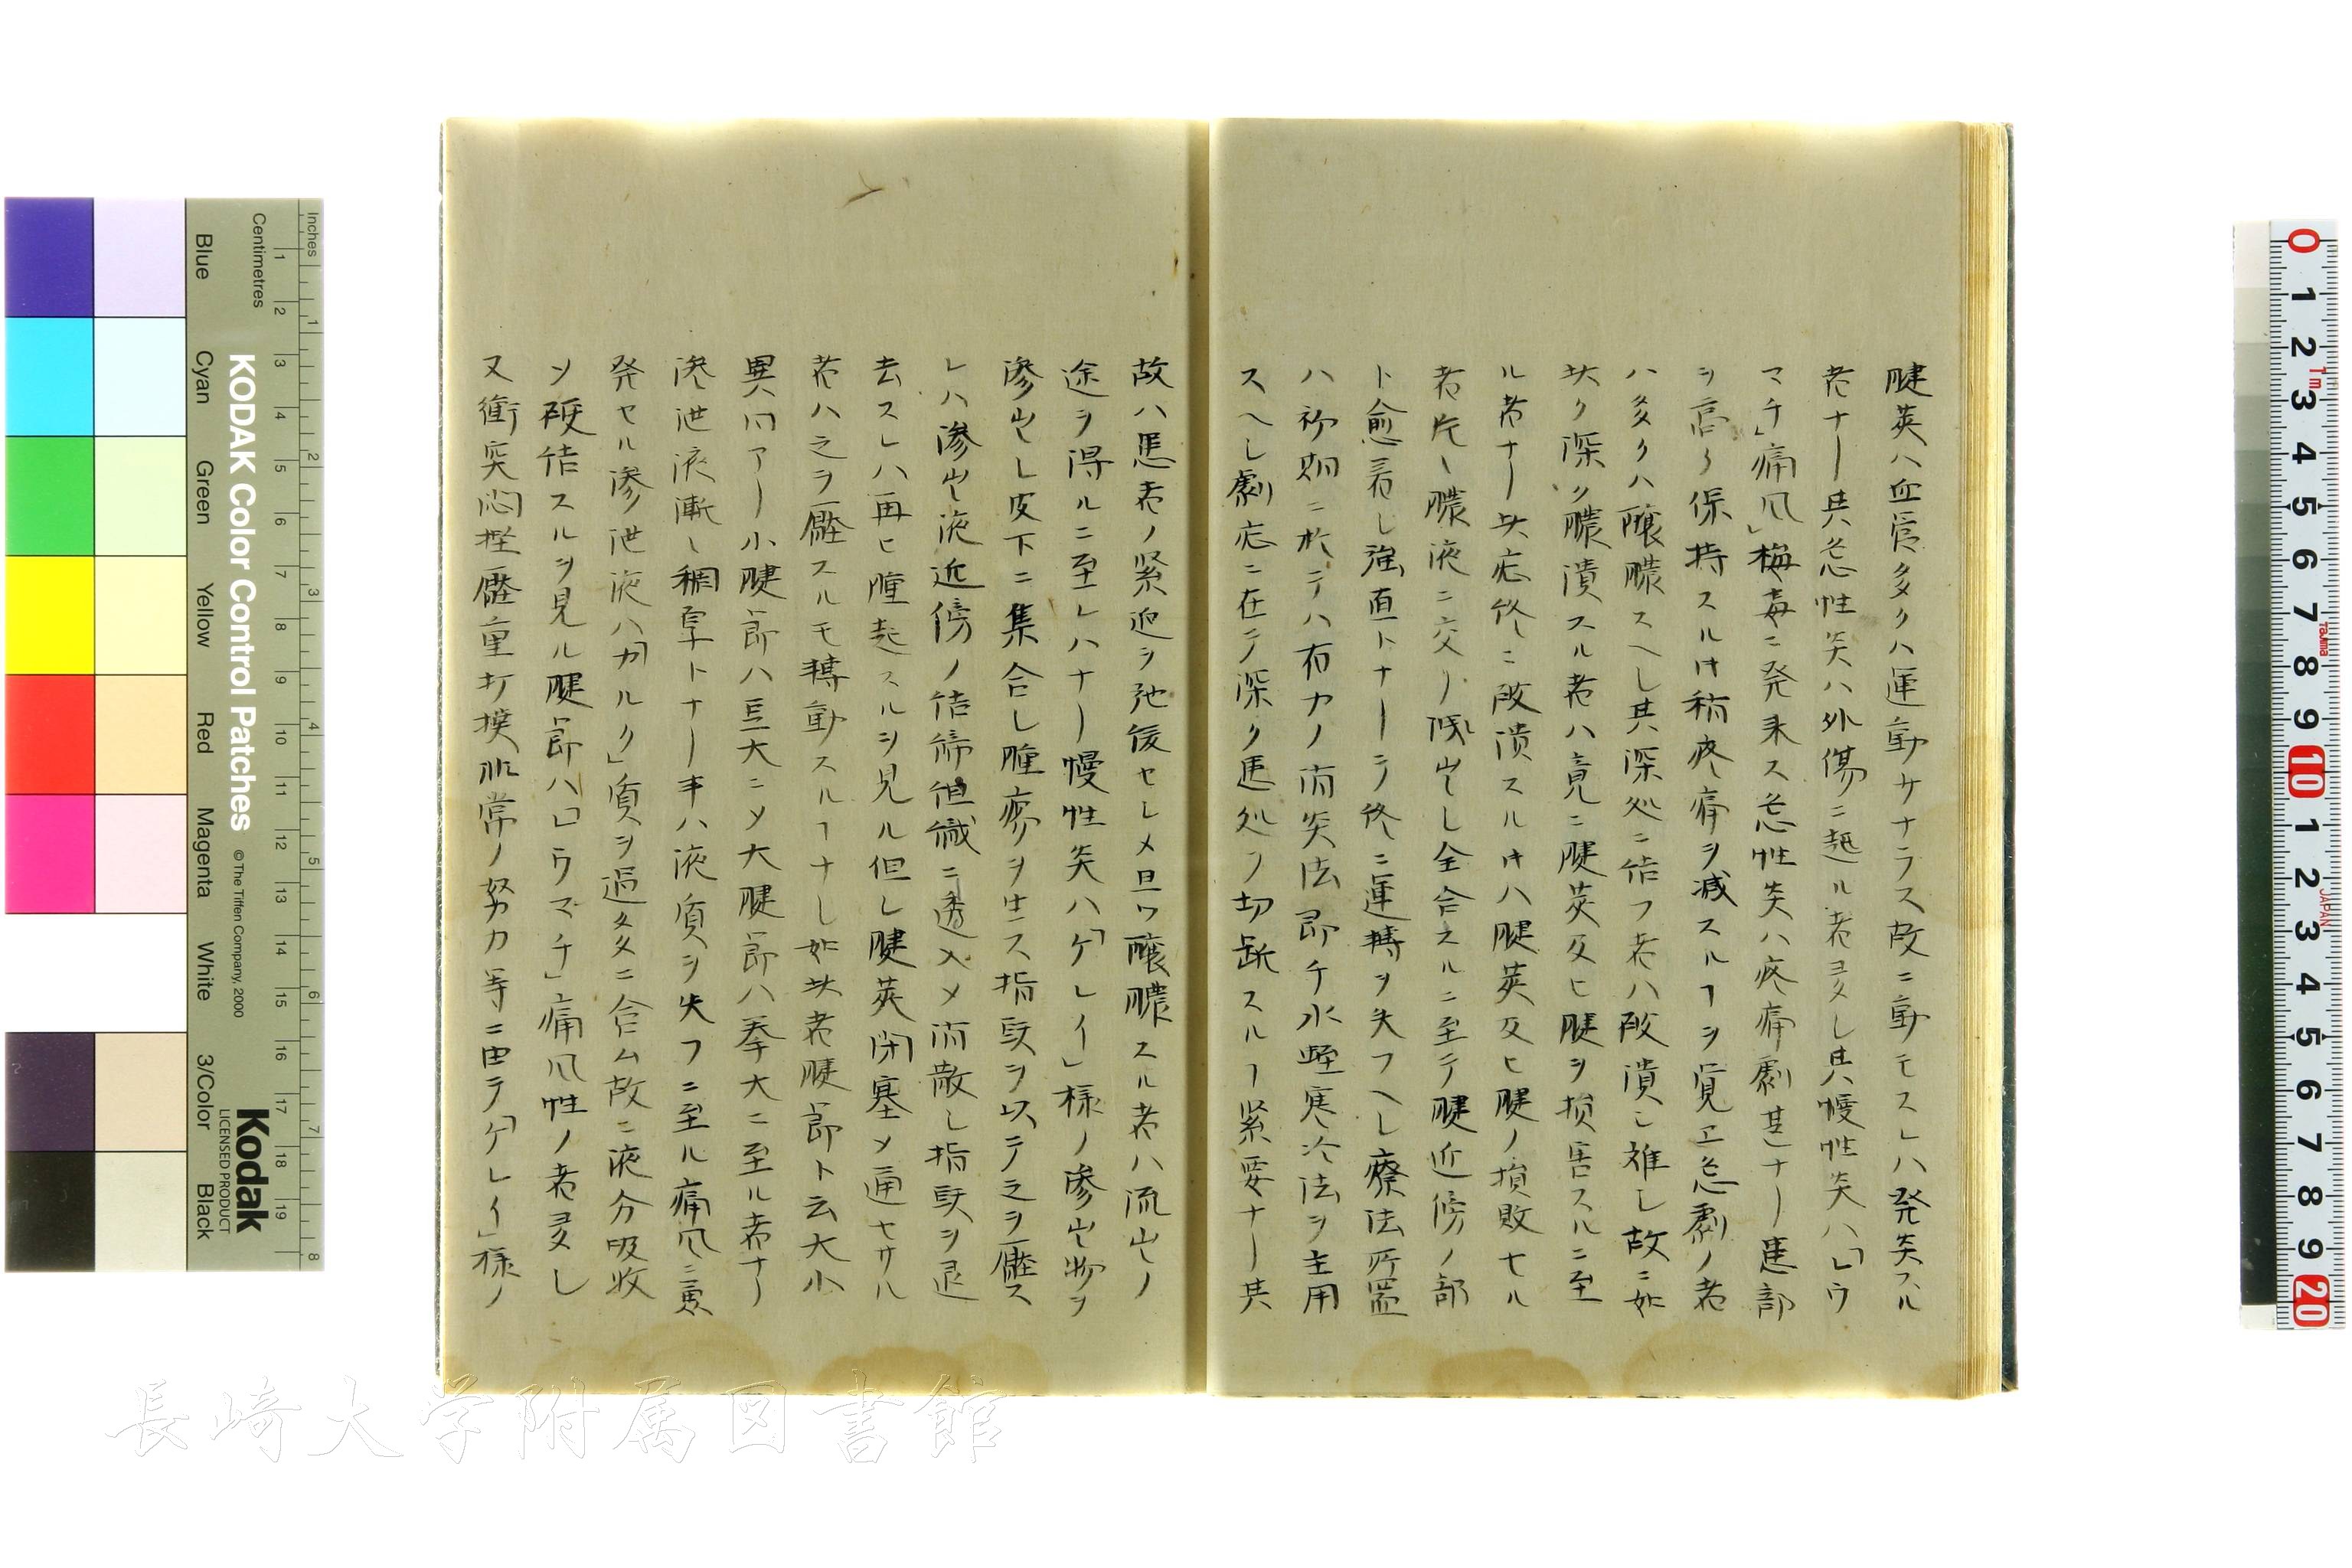 腱莢ハ血管多クハ運動サナラス故ニ動モスレハ発炎スル
者ナリ其急性炎ハ外傷ニ起ル者多シ其慢性炎ハ「レウ
マチ」痛風」梅毒ニ発来ス急性炎ハ疼痛劇甚ナリ患部
ヲ高ク保持スルキ稍疼痛ヲ減スルヿヲ覚ヱ急劇ノ者
ハ多クハ醸膿スヘシ其深処ニ結フ者ハ破潰シ難シ故ニ如
此ク深ク膿潰スル者ハ竟ニ腱莢及ヒ腱ヲ損害スルニ至
ル者ナリ此症終ニ破潰スルキハ腱莢及ヒ腱ノ損敗セル
者片々膿液ニ交リ流出シ全合スルニ至テ腱近傍ノ部
ト愈着シ強直トナリテ終ニ運轉ヲ失フヘシ療法所置
ハ初期ニ於テハ有力ノ消炎法即チ水蛭寒冷法ヲ主用
スヘシ劇症ニ在テ深ク患処ヲ切斷スルヿ緊要ナリ其
故ハ患者ノ緊迫ヲ弛緩セシメ且ツ醸膿スル者ハ流出ノ
途ヲ得ルニ至レハナリ慢性炎ハ「ゲレイ」様ノ滲出物ヲ
滲出シ皮下ニ集合シ腫瘍ヲ生ス指頭ヲ以テ之ヲ壓ス
レハ滲出液近傍ノ結締組織ニ透入メ消散シ指頭ヲ退
去スレハ再ヒ腫起スルヲ見ル但シ腱莢閉塞メ通セサル
者ハ之ヲ壓スルモ轉動スルヿナシ如此者腱節ト云大小
異同アリ小腱節ハ豆大ニメ大腱節ハ拳大ニ至ル者ナリ
滲泄液漸々稠厚トナリ半ハ液質ヲ失フニ至ル痛風ニ兼
発セル滲泄液ハ「カルク」質ヲ過多ニ含ム故ニ液分吸收
メ硬結スルヲ見ル腱節ハ「ロウマチ」痛風性ノ者多シ
又衝突悶挫壓重打撲非常ノ努力等ニ由テ「ゲレイ」様ノ
Inches
Centimetres
KODAK Color Control Patches
©The Tiffen Company, 2000
Kodak
LICENSED PRODUCT
Blue
Cyan
Green
Yellow
Red
Magenta
White
3/Color
Black
長崎大学附属図書館